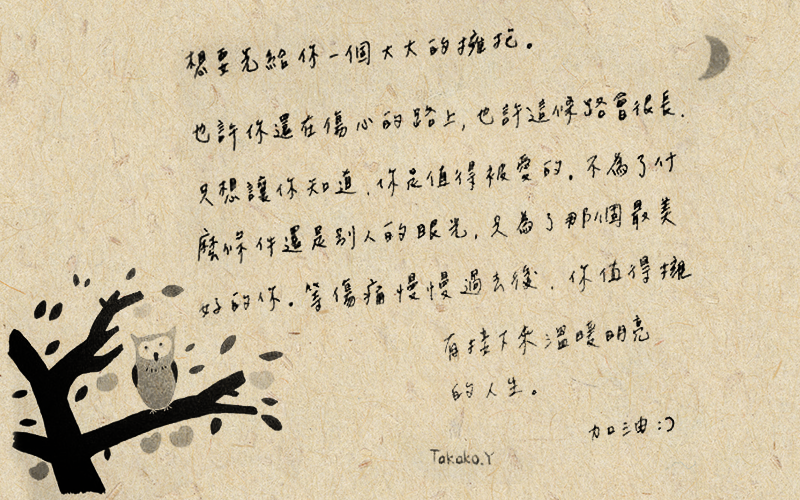 想要先給你一個大大的擁抱。
也許你還在傷心的路上,也許這條路會很長.
只想讓你知道.你是值得被愛的。不為了什
麼條件還是別人的眼光.只為了那個最美
好的你。等傷痛慢慢過去後.你值得擁
有接下來溫暖明亮
的人生。
加油:)
Takako.Y